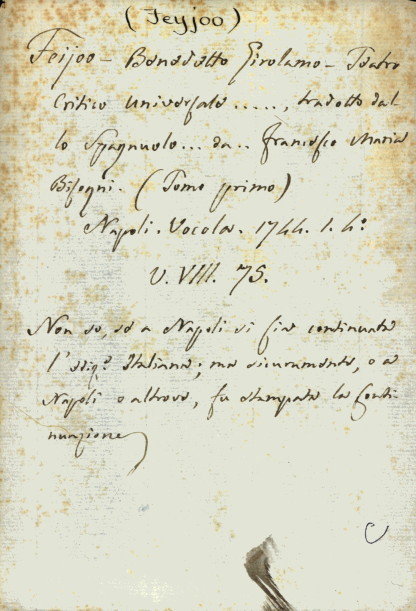 (Feyjoo)
Feijoo - Benedetto Girolamo - Teatro
Critico Universale ....., tradotto dal
lo Spagnuolo... da.. Francesco Maria
Bisogni. (Tomo primo)
Napoli. Vocola. 1744. 1. 4º
V. VIII. 75.
Non so, se a Napoli si sia continuata
l' ediz.e Italiana; ma sicuramente, o a
Napoli o altrove, fu stampata la conti-
nuazione